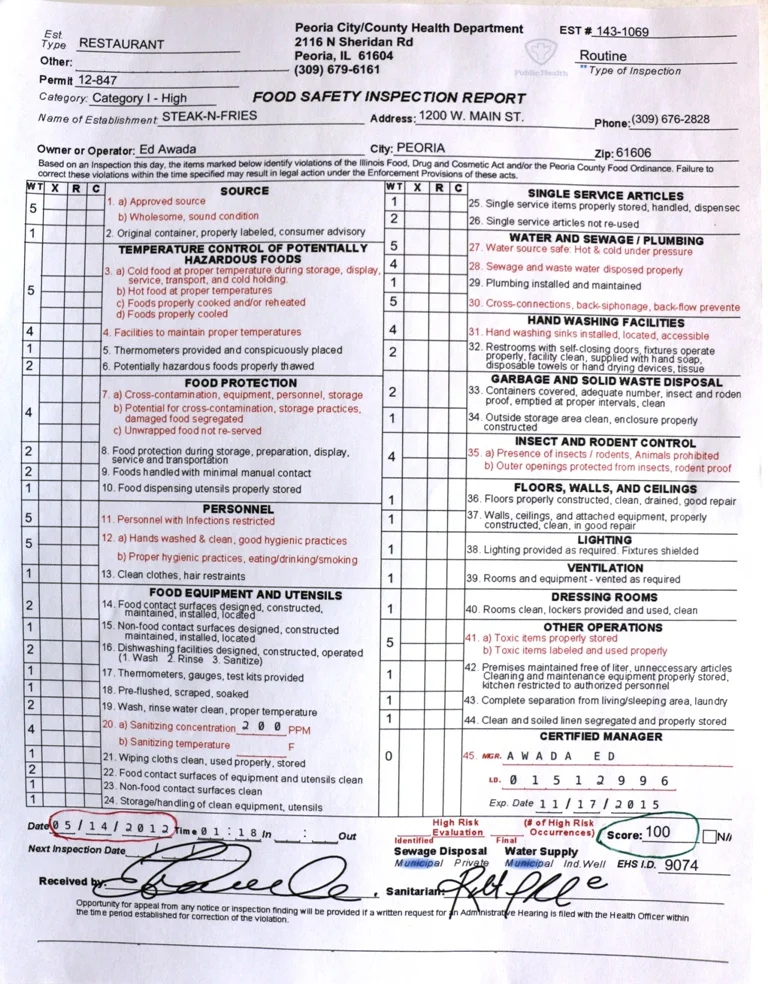 Peoria City/County Health Department
2116 N Sheridan Rd
Peoria, IL 61604
(309) 679-6161
Est. Type RESTAURANT
Other:
Permit 12-847
Category: Category I - High
EST # 143-1069
Public Health
Routine
**Type of Inspection
FOOD SAFETY INSPECTION REPORT
Name of Establishment STEAK-N-FRIES
Address: 1200 W. MAIN ST.
Phone: (309) 676-2828
Owner or Operator: Ed Awada
City: PEORIA
Zip: 61606
Based on an Inspection this day, the items marked below identify violations of the Illinois Food, Drug and Cosmetic Act and/or the Peoria County Food Ordinance. Failure to
correct these violations within the time specified may result in legal action under the Enforcement Provisions of these acts.
WT X R C
SOURCE
5 1. a) Approved source
b) Wholesome, sound condition
1 2. Original container, properly labeled, consumer advisory
TEMPERATURE CONTROL OF POTENTIALLY
HAZARDOUS FOODS
5 3. a) Cold food at proper temperature during storage, display,
service, transport, and cold holding.
b) Hot food at proper temperatures
c) Foods properly cooked and/or reheated
d) Foods properly cooled
4 4. Facilities to maintain proper temperatures
1 5. Thermometers provided and conspicuously placed
2 6. Potentially hazardous foods properly thawed
FOOD PROTECTION
4 7. a) Cross-contamination, equipment, personnel, storage
b) Potential for cross-contamination, storage practices,
damaged food segregated
c) Unwrapped food not re-served
2 8. Food protection during storage, preparation, display,
service and transportation
2 9. Foods handled with minimal manual contact
1 10. Food dispensing utensils properly stored
PERSONNEL
5 11. Personnel with Infections restricted
5 12. a) Hands washed & clean, good hygienic practices
b) Proper hygienic practices, eating/drinking/smoking
1 13. Clean clothes, hair restraints
FOOD EQUIPMENT AND UTENSILS
2 14. Food contact surfaces designed, constructed,
maintained, installed, located
1 15. Non-food contact surfaces designed, constructed
maintained, installed, located
2 16. Dishwashing facilities designed, constructed, operated
(1. Wash 2. Rinse 3. Sanitize)
1 17. Thermometers, gauges, test kits provided
1 18. Pre-flushed, scraped, soaked
2 19. Wash, rinse water clean, proper temperature
4 20. a) Sanitizing concentration 2 0 0 PPM
b) Sanitizing temperature F
1 21. Wiping cloths clean, used properly, stored
2 22. Food contact surfaces of equipment and utensils clean
1 23. Non-food contact surfaces clean
1 24. Storage/handling of clean equipment, utensils
WT X R C
SINGLE SERVICE ARTICLES
1 25. Single service items properly stored, handled, dispensec
2 26. Single service articles not re-used
WATER AND SEWAGE / PLUMBING
5 27. Water source safe: Hot & cold under pressure
4 28. Sewage and waste water disposed properly
1 29. Plumbing installed and maintained
5 30. Cross-connections, back-siphonage, back-flow prevente
HAND WASHING FACILITIES
4 31. Hand washing sinks installed, located, accessible
2 32. Restrooms with self-closing doors, fixtures operate
properly, facility clean, supplied with hand soap,
disposable towels or hand drying devices, tissue
GARBAGE AND SOLID WASTE DISPOSAL
2 33. Containers covered, adequate number, insect and roden
proof, emptied at proper intervals, clean
1 34. Outside storage area clean, enclosure properly
constructed
INSECT AND RODENT CONTROL
4 35. a) Presence of insects / rodents, Animals prohibited
b) Outer openings protected from insects, rodent proof
FLOORS, WALLS, AND CEILINGS
1 36. Floors properly constructed, clean, drained, good repair
1 37. Walls, ceilings, and attached equipment, properly
constructed, clean, in good repair
LIGHTING
1 38. Lighting provided as required. Fixtures shielded
VENTILATION
1 39. Rooms and equipment - vented as required
DRESSING ROOMS
1 40. Rooms clean, lockers provided and used, clean
OTHER OPERATIONS
5 41. a) Toxic items properly stored
b) Toxic items labeled and used properly
1 42. Premises maintained free of liter, unneccessary articles
Cleaning and maintenance equipment properly stored,
kitchen restricted to authorized personnel
1 43. Complete separation from living/sleeping area, laundry
1 44. Clean and soiled linen segregated and properly stored
CERTIFIED MANAGER
0 45. MGR. A W A D A E D
I.D. 0 1 5 1 2 9 9 6
Exp. Date 1 1 / 1 7 / 2 0 1 5
Date 0 5 / 1 4 / 2 0 1 2 Time 0 1 : 1 8 In : Out
High Risk Evaluation
(# of High Risk Occurrences)
Identified Final
Score: 100
N/
Next Inspection Date
Sewage Disposal Water Supply
Municipal Private Municipal Ind.Well EHS I.D. 9074
Received by , Sanitarian:
Opportunity for appeal from any notice or inspection finding will be provided if a written request for an Administrative Hearing is filed with the Health Officer within
the time period established for correction of the violation.